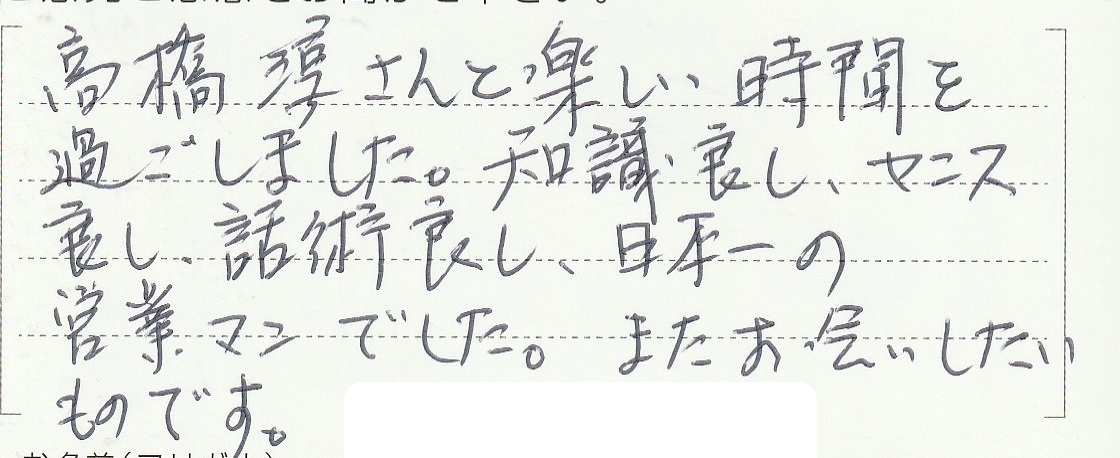 高橋淳さんと楽しい時間を
過ごしました。知識良し、センス
良し、話術良し、日本一の
営業マンでした。またお会いしたい
ものです。